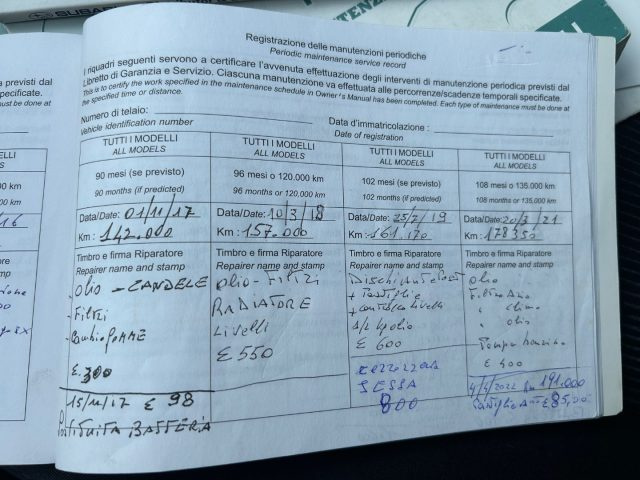 SUBARU
Registrazione delle manutenzioni periodiche
Periodic maintenance service record
I riquadri seguenti servono a certificare l'avvenuta effettuazione degli interventi di manutenzione periodica previsti dal
Libretto di Garanzia e Servizio. Ciascuna manutenzione va effettuata alle percorrenze/scadenze temporali specificate.
This is to certify the work specified in the maintenance schedule in Owner's Manual has been completed. Each type of maintenance must be done at
the specified time or distance.
Numero di telaio:
Vehicle identification number
Data d'immatricolazione :
Date of registration
TUTTI I MODELLI
ALL MODELS
90 mesi (se previsto)
90 months (if predicted)
Data/Date: 01/11/17
Km : 142.000
Timbro e firma Riparatore
Repairer name and stamp
olio - CANDELE
- Filtri
€.300
15/11/17 € 98
BATTERIA
TUTTI I MODELLI
ALL MODELS
96 mesi o 120.000 km
96 months or 120,000 km
Data/Date: 10/3/18
Km : 157.000
Timbro e firma Riparatore
Repairer name and stamp
olio - Filtri
RADIATORE
Livelli
€ 550
TUTTI I MODELLI
ALL MODELS
102 mesi (se previsto)
102 months (if predicted)
Data/Date: 25/2/19
Km : 161.170
Timbro e firma Riparatore
Repairer name and stamp
+ Pastiglie
+ controllo livelli
olio
€ 600
SESSA
800
TUTTI I MODELLI
ALL MODELS
108 mesi o 135.000 km
108 months or 135,000 km
Data/Date: 20/3/21
Km : 178350
Timbro e firma Riparatore
Repairer name and stamp
olio
Filtro Aria
" clima
" olio
Pompa benzina
€ 400
4/4/2022 Km 191.000
Pastiglie Ant € 85,00